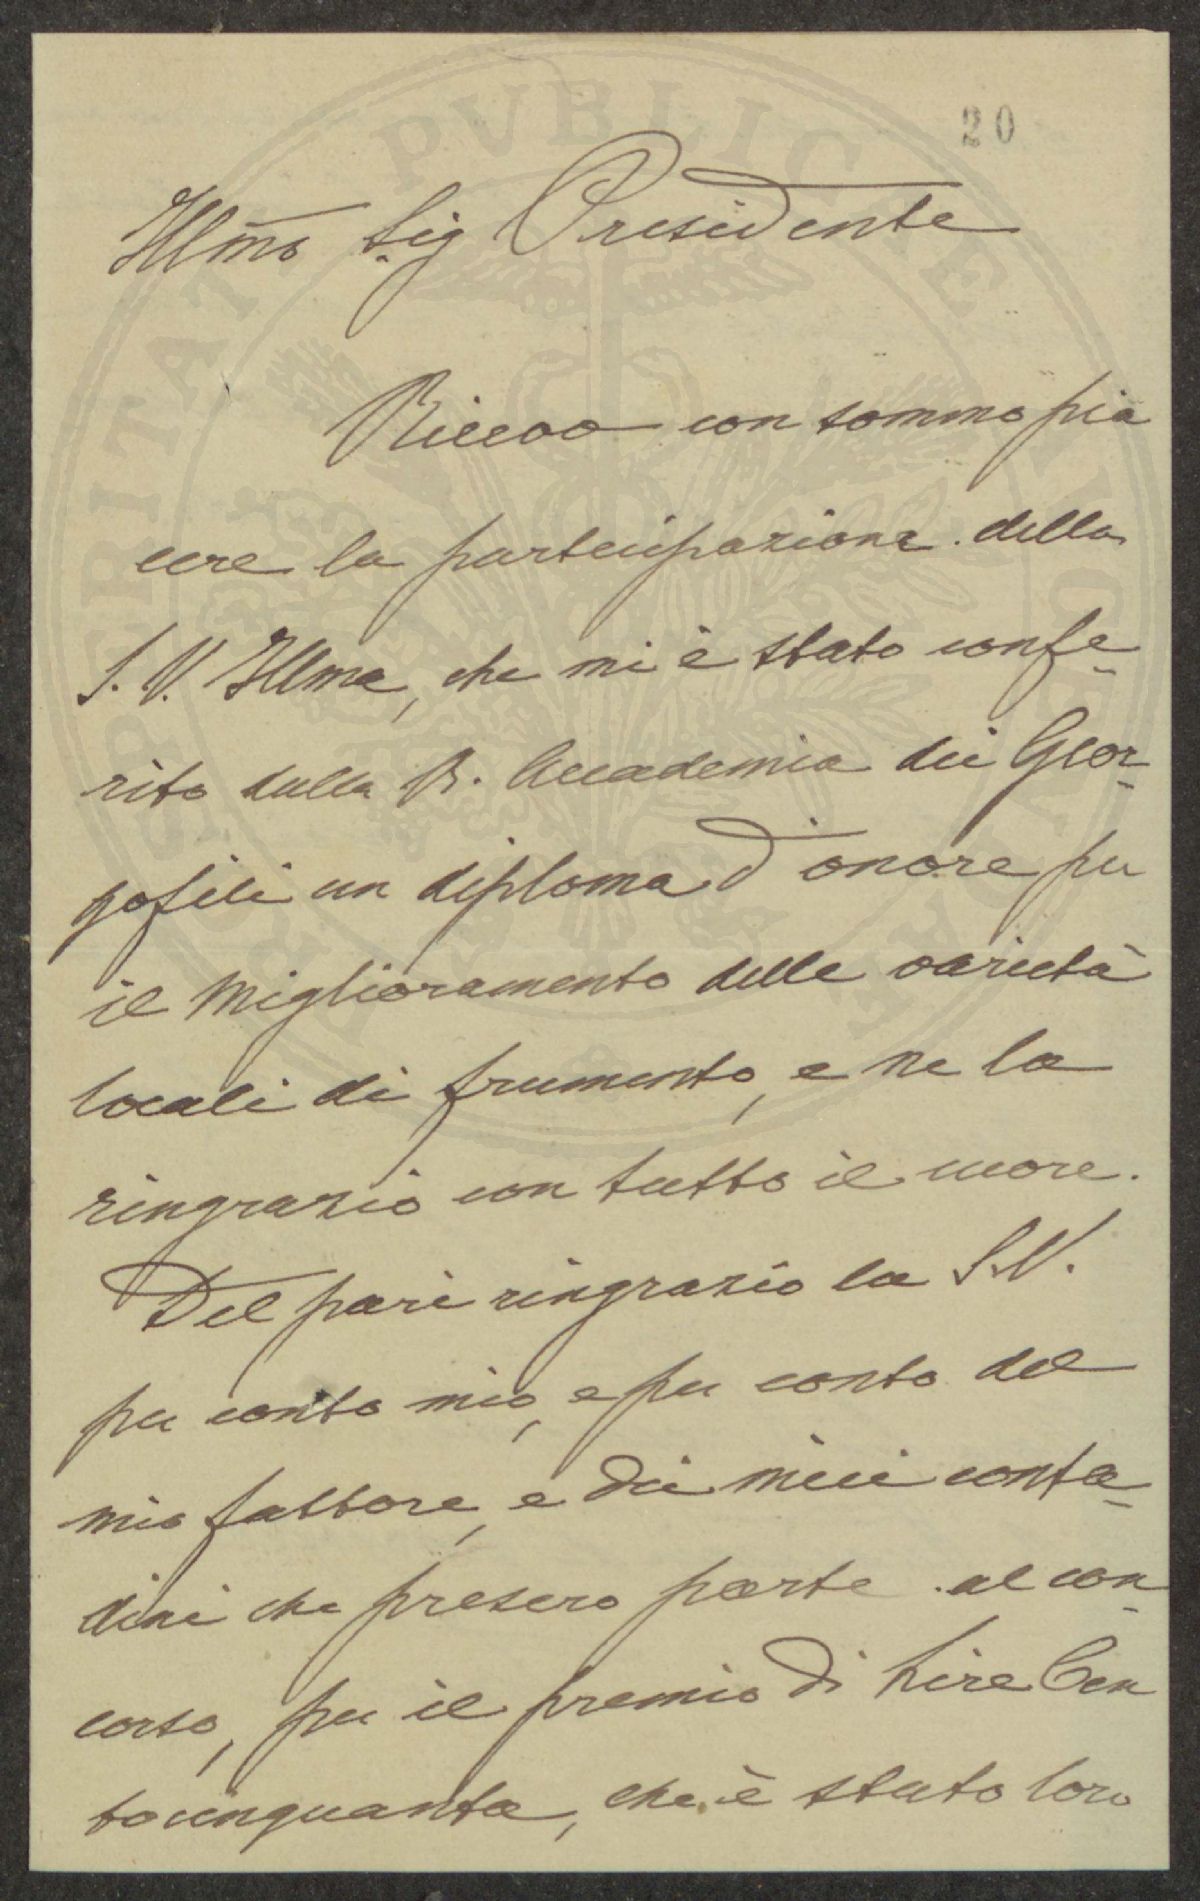 20
Illmo Sig Presidente
Ricevo con sommo pia
cere la partecipazione della
S. V. Illma, che mi è stato confe-
rito dalla R. Accademia dei Geor-
gofili un diploma d'onore per
il miglioramento delle varietà
locali di frumento, e ne la
ringrazio con tutto il cuore.
Del pari ringrazio la S.V.
per conto mio, e per conto del
mio fattore, e dei miei conta-
dini che presero parte al con-
corso, per il premio di Lire Cen
tocinquanta, che è stato loro
PROSPERITATI PVBLICAE AVGENDAE